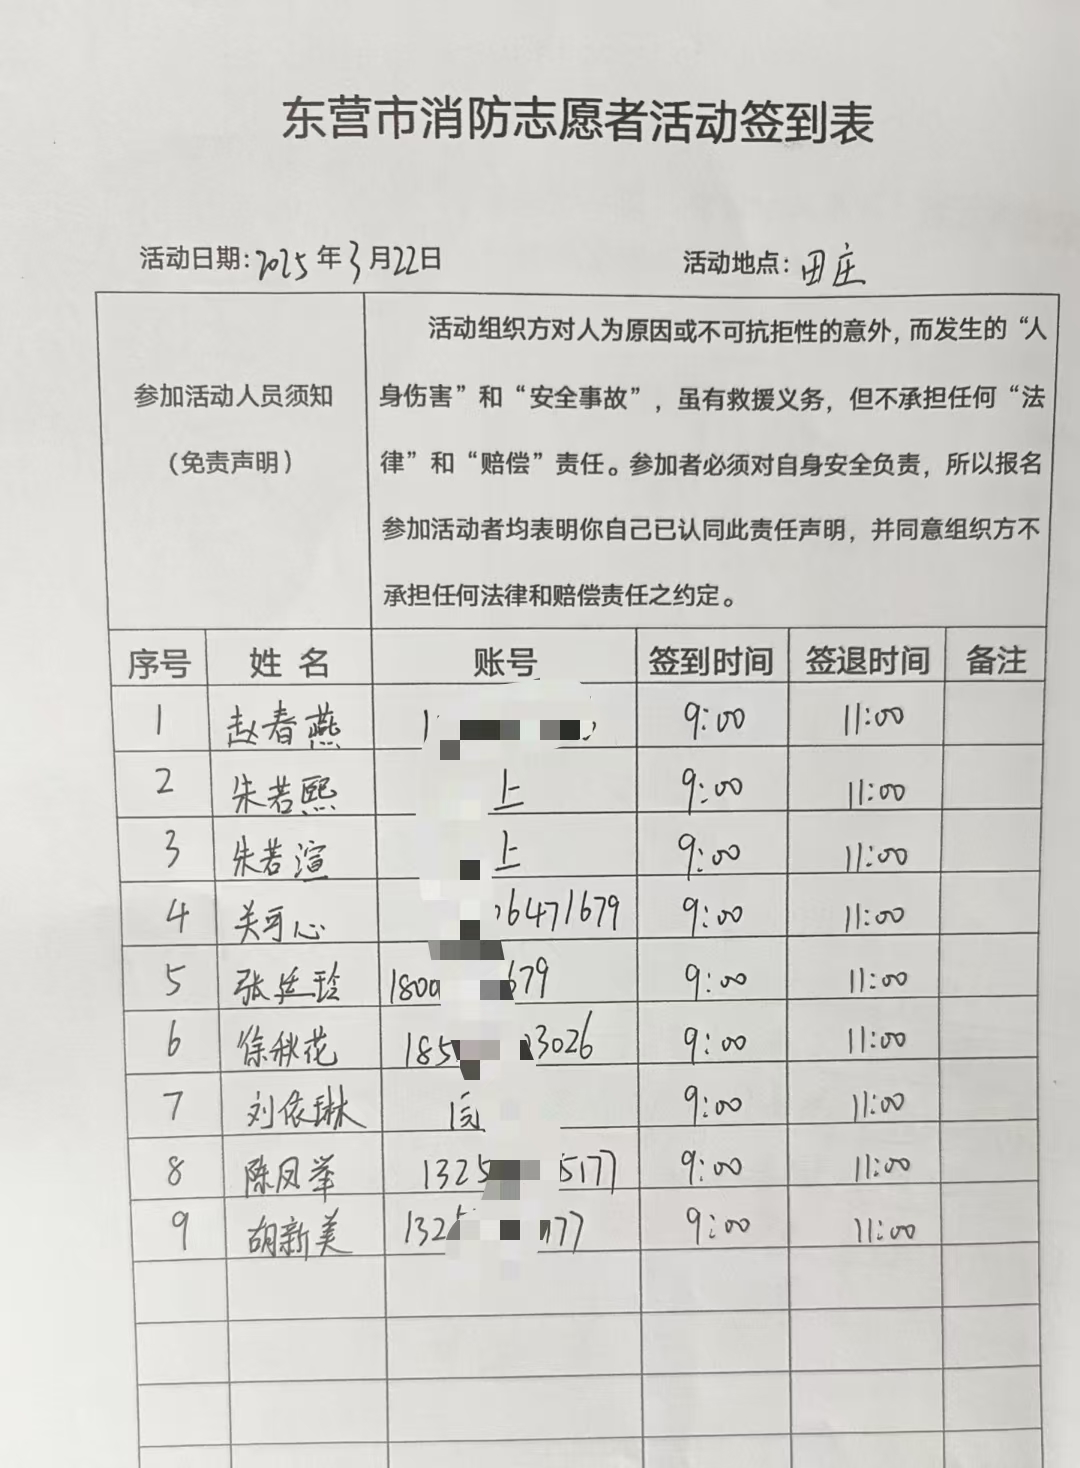 东营市消防志愿者活动签到表
活动日期:2025年3月22日 活动地点:田庄
参加活动人员须知
(免责声明)
活动组织方对人为原因或不可抗拒性的意外,而发生的“人
身伤害”和“安全事故”,虽有救援义务,但不承担任何“法
律”和“赔偿”责任。参加者必须对自身安全负责,所以报名
参加活动者均表明你自己已认同此责任声明,并同意组织方不
承担任何法律和赔偿责任之约定。
序号 姓名 账号 签到时间 签退时间 备注
1 赵春燕 9:00 11:00
2 朱若熙 上 9:00 11:00
3 朱若渲 上 9:00 11:00
4 关可心 6471679 9:00 11:00
5 张廷玲 180 679 9:00 11:00
6 徐秋花 185 3026 9:00 11:00
7 刘依琳 9:00 11:00
8 陈凤举 1325 5177 9:00 11:00
9 胡新美 132 77 9:00 11:00